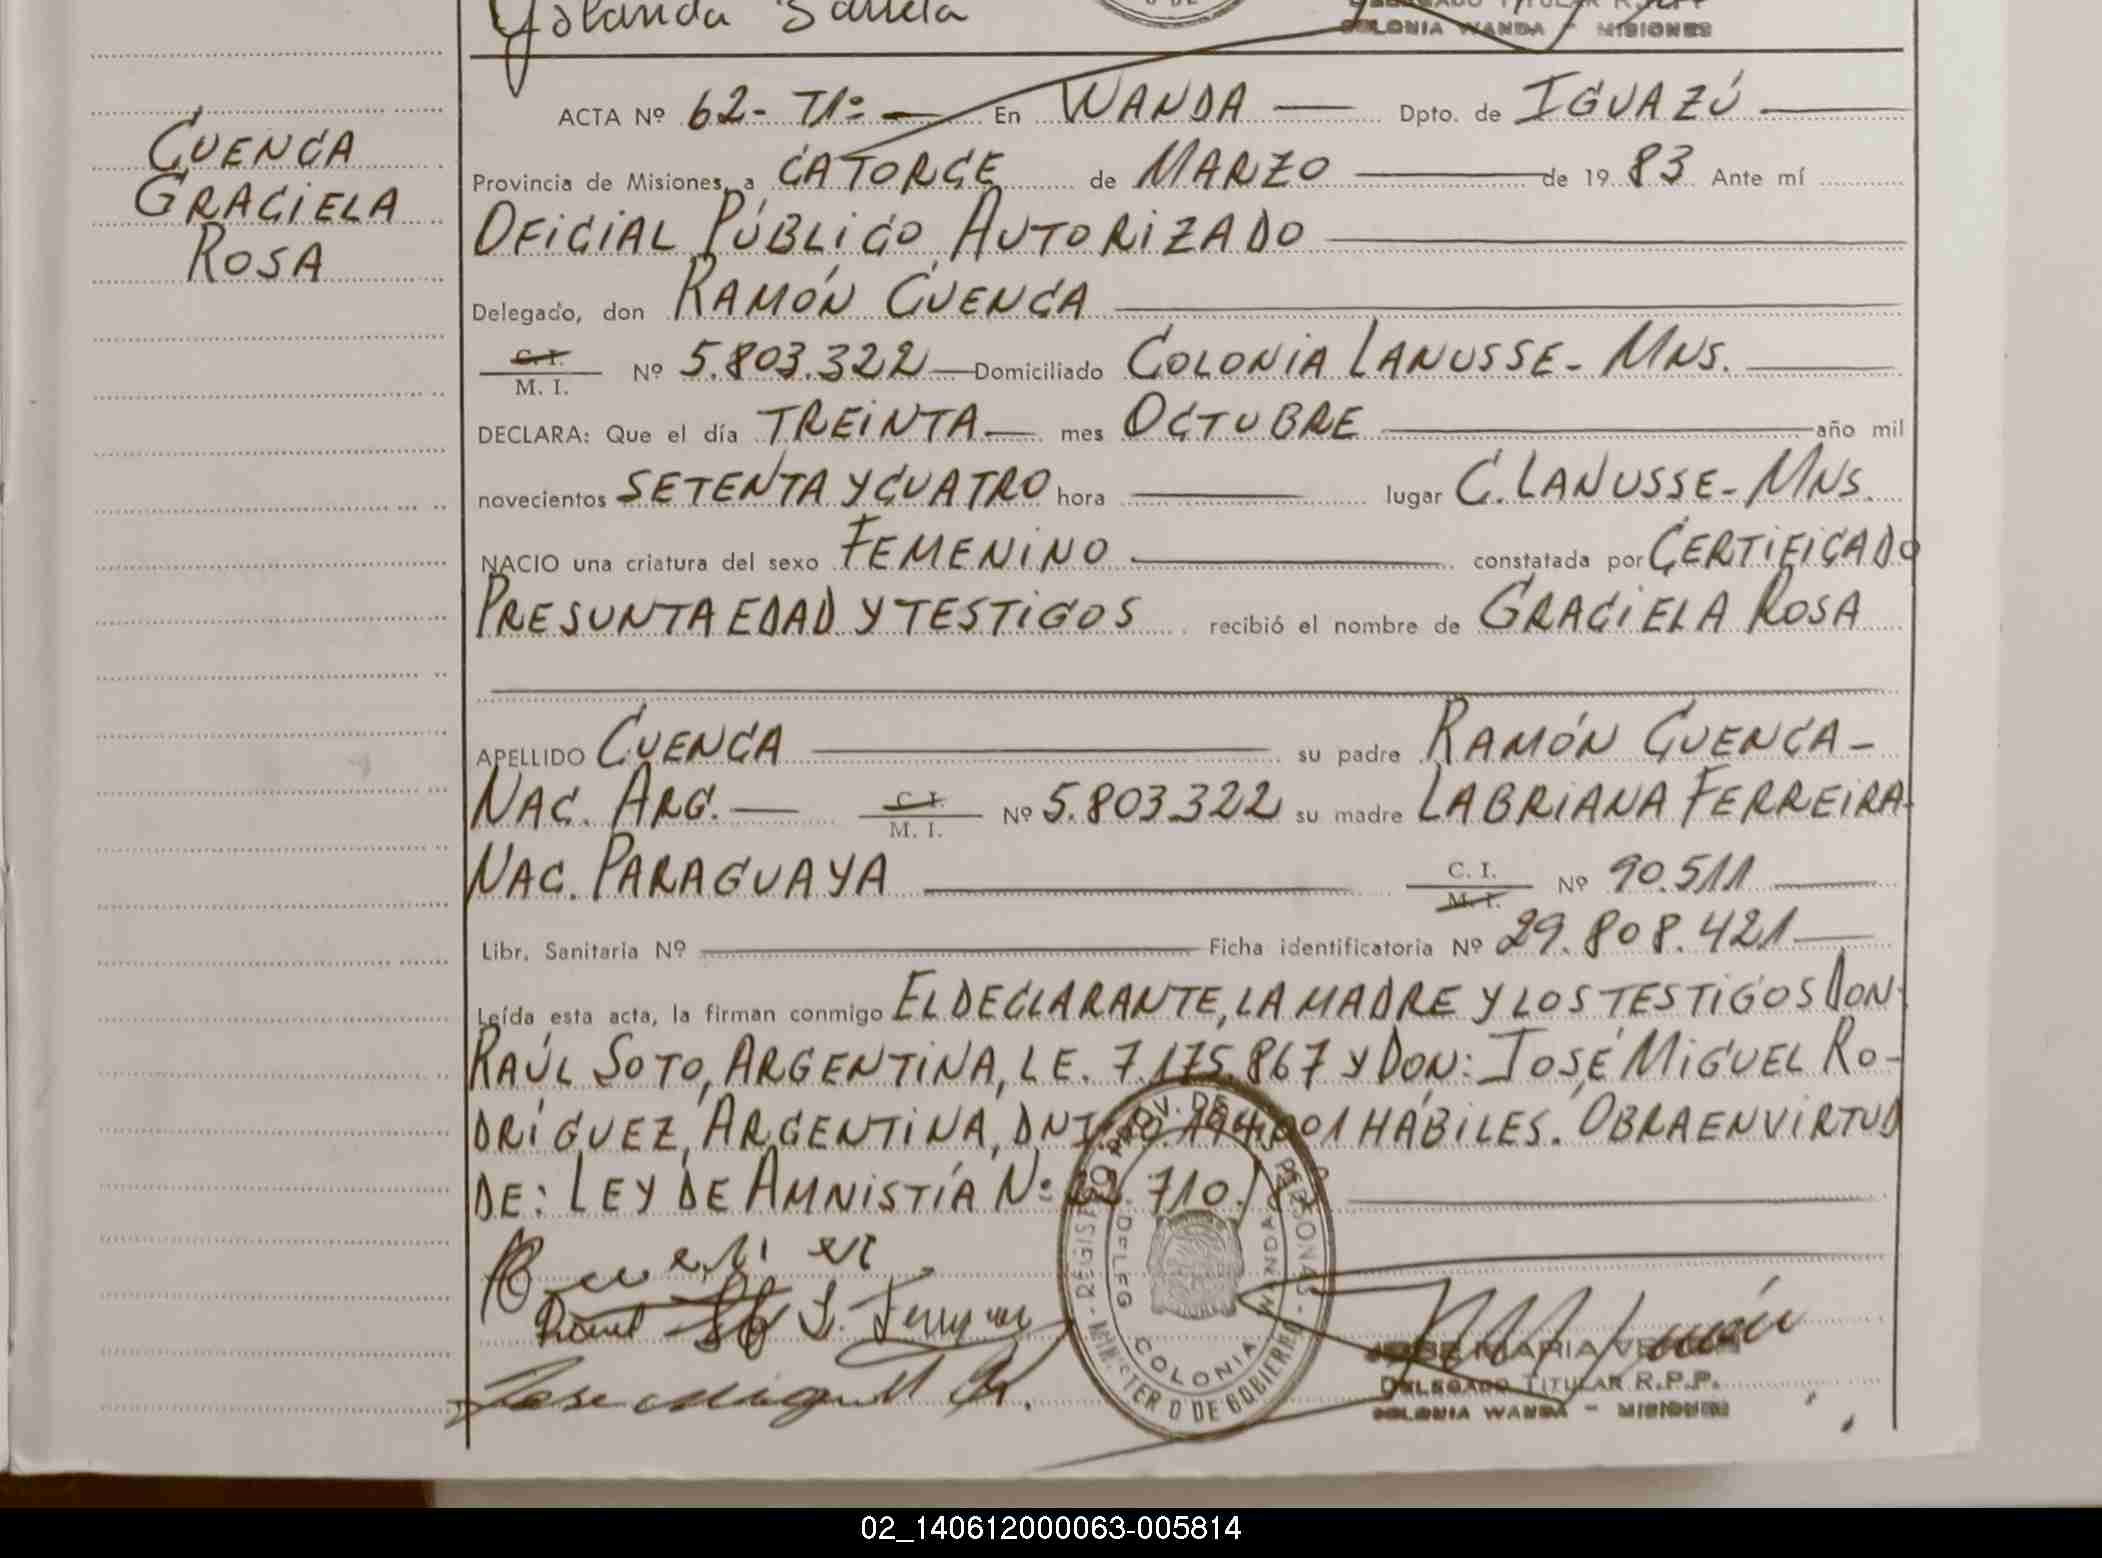 Yolanda
COLONIA WANDA - MISIONES
CUENCA
GRACIELA
ROSA
ACTA Nº 62- T1º En WANDA Dpto. de IGUAZÚ
Provincia de Misiones, a CATORCE de MARZO de 19 83 Ante mí
OFICIAL PÚBLICO AUTORIZADO
Delegado, don RAMÓN CUENCA
C. I.
M. I. Nº 5.803.322 Domiciliado COLONIA LANUSSE - MNS.
DECLARA: Que el día TREINTA mes OCTUBRE año mil
novecientos SETENTA Y CUATRO hora lugar C. LANUSSE - MNS.
NACIO una criatura del sexo FEMENINO constatada por CERTIFICADO
PRESUNTA EDAD Y TESTIGOS recibió el nombre de GRACIELA ROSA
APELLIDO CUENCA su padre RAMÓN CUENCA -
NAC. ARG. C. I. M. I. Nº 5.803.322 su madre LABRIANA FERREIRA-
NAC. PARAGUAYA C. I. M. I. Nº 90.511
Libr. Sanitaria Nº Ficha identificatoria Nº 29.808.421
Leída esta acta, la firman conmigo EL DECLARANTE, LA MADRE Y LOS TESTIGOS DON:
RAÚL SOTO, ARGENTINA, L E. 7.175.867 Y DON: JOSÉ MIGUEL RO-
DRÍGUEZ, ARGENTINA, DNI HÁBILES. OBRA EN VIRTUD
DE: LEY DE AMNISTÍA Nº 22.710.
REGISTRO PROV. DE LAS PERSONAS - MINISTERIO DE GOBIERNO
DELEG. COLONIA WANDA
Jose Miguel R.
JOSE MARIA
DELEGADO TITULAR R.P.P.
COLONIA WANDA - MISIONES
02_140612000063-005814